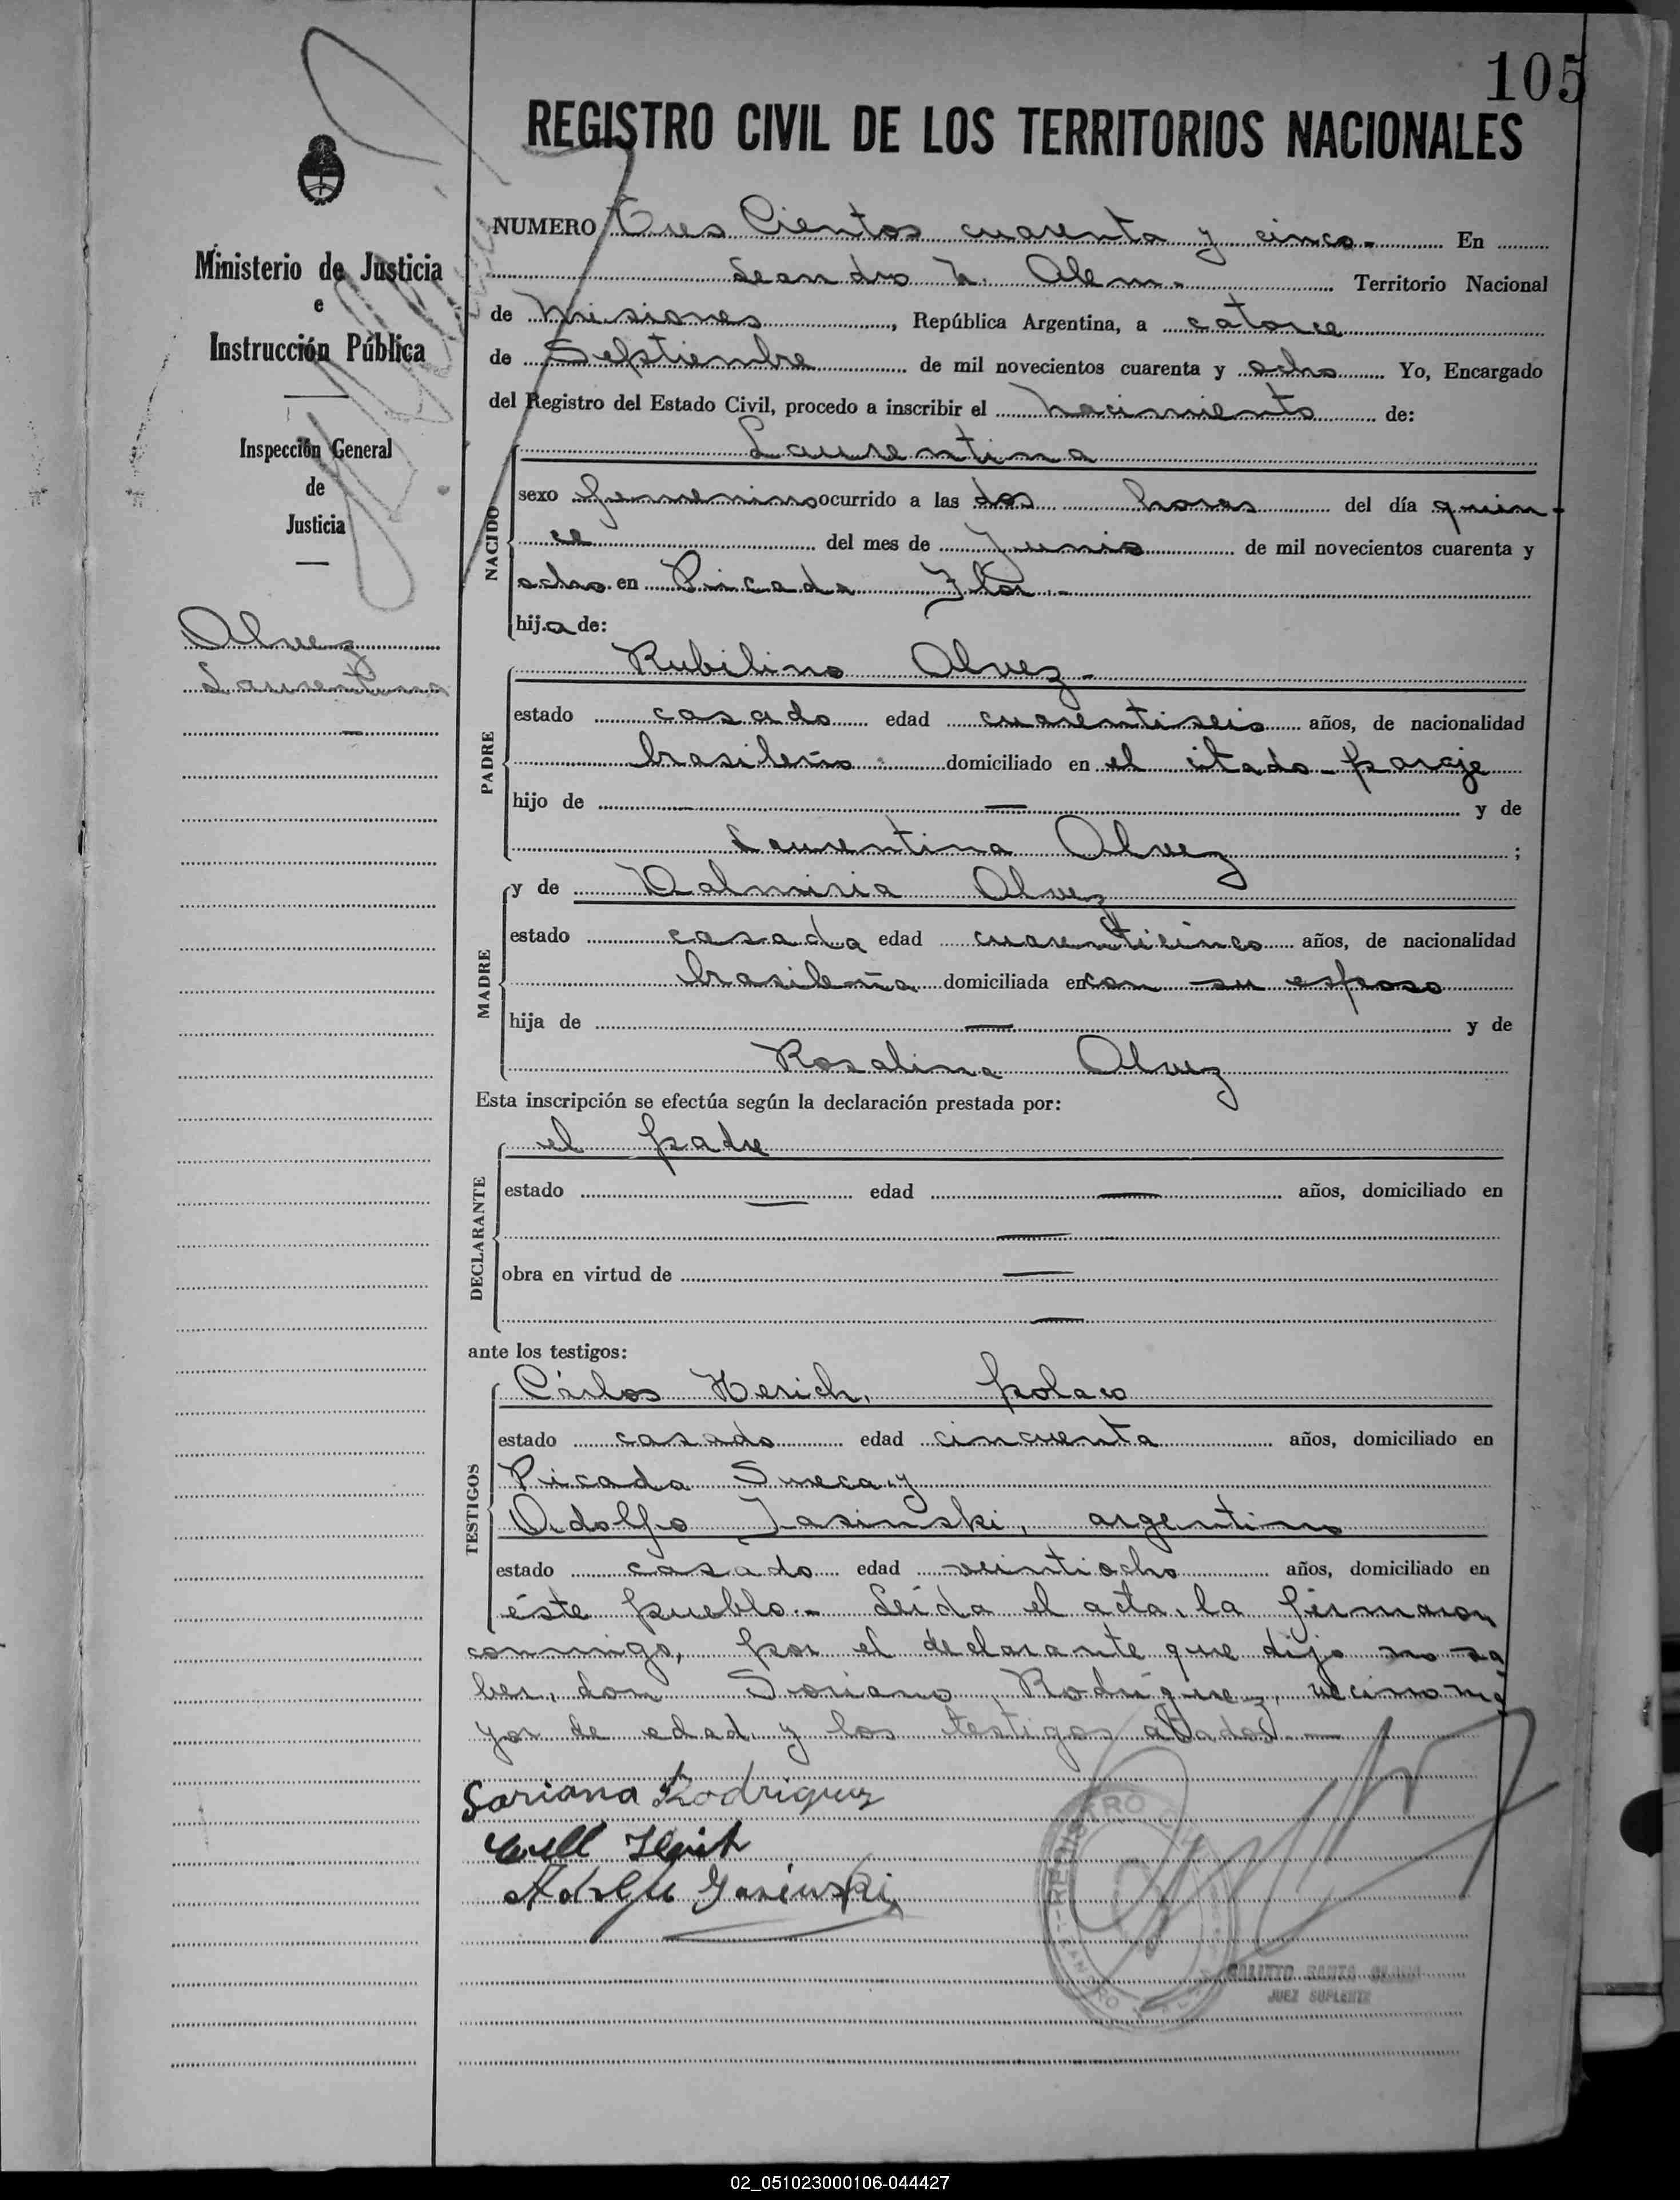 105
REGISTRO CIVIL DE LOS TERRITORIOS NACIONALES
Ministerio de Justicia
e
Instrucción Pública
Inspección General
de
Justicia
Alvez
Laurentina
NUMERO Tres Cientos cuarenta y cinco.- En
Leandro N. Alem.- Territorio Nacional
de Misiones, República Argentina, a catorce
de Septiembre de mil novecientos cuarenta y ocho Yo, Encargado
del Registro del Estado Civil, procedo a inscribir el nacimiento de:
Laurentina
NACIDO
sexo femenino ocurrido a las dos horas del día quin-
ce del mes de Junio de mil novecientos cuarenta y
ocho en Picada Flor.-
hija de:
Rubilino Alvez.-
PADRE
estado casado edad cuarentiseis años, de nacionalidad
brasileño domiciliado en el citado paraje
hijo de — y de
Laurentina Alvez ;
y de Dalmiria Alvez
MADRE
estado casada edad cuarenticinco años, de nacionalidad
brasileña domiciliada en con su esposo
hija de — y de
Rosalina Alvez
Esta inscripción se efectúa según la declaración prestada por:
el padre
DECLARANTE
estado — edad — años, domiciliado en
—
obra en virtud de —
—
ante los testigos:
Cárlos Herich, polaco
TESTIGOS
estado casado edad cincuenta años, domiciliado en
Picada Sueca y
Adolfo Jasinski, argentino
estado casado edad veintiocho años, domiciliado en
éste pueblo.- Leída el acta, la firmaron
conmigo, por el declarante que dijo no sa
ber, don Soriano Rodríguez, vecino ma
yor de edad y los testigos citados.—
Soriano Rodriguez
Adolfo Jasinski
REGISTRO
JUEZ SUPLENTE
02_051023000106-044427